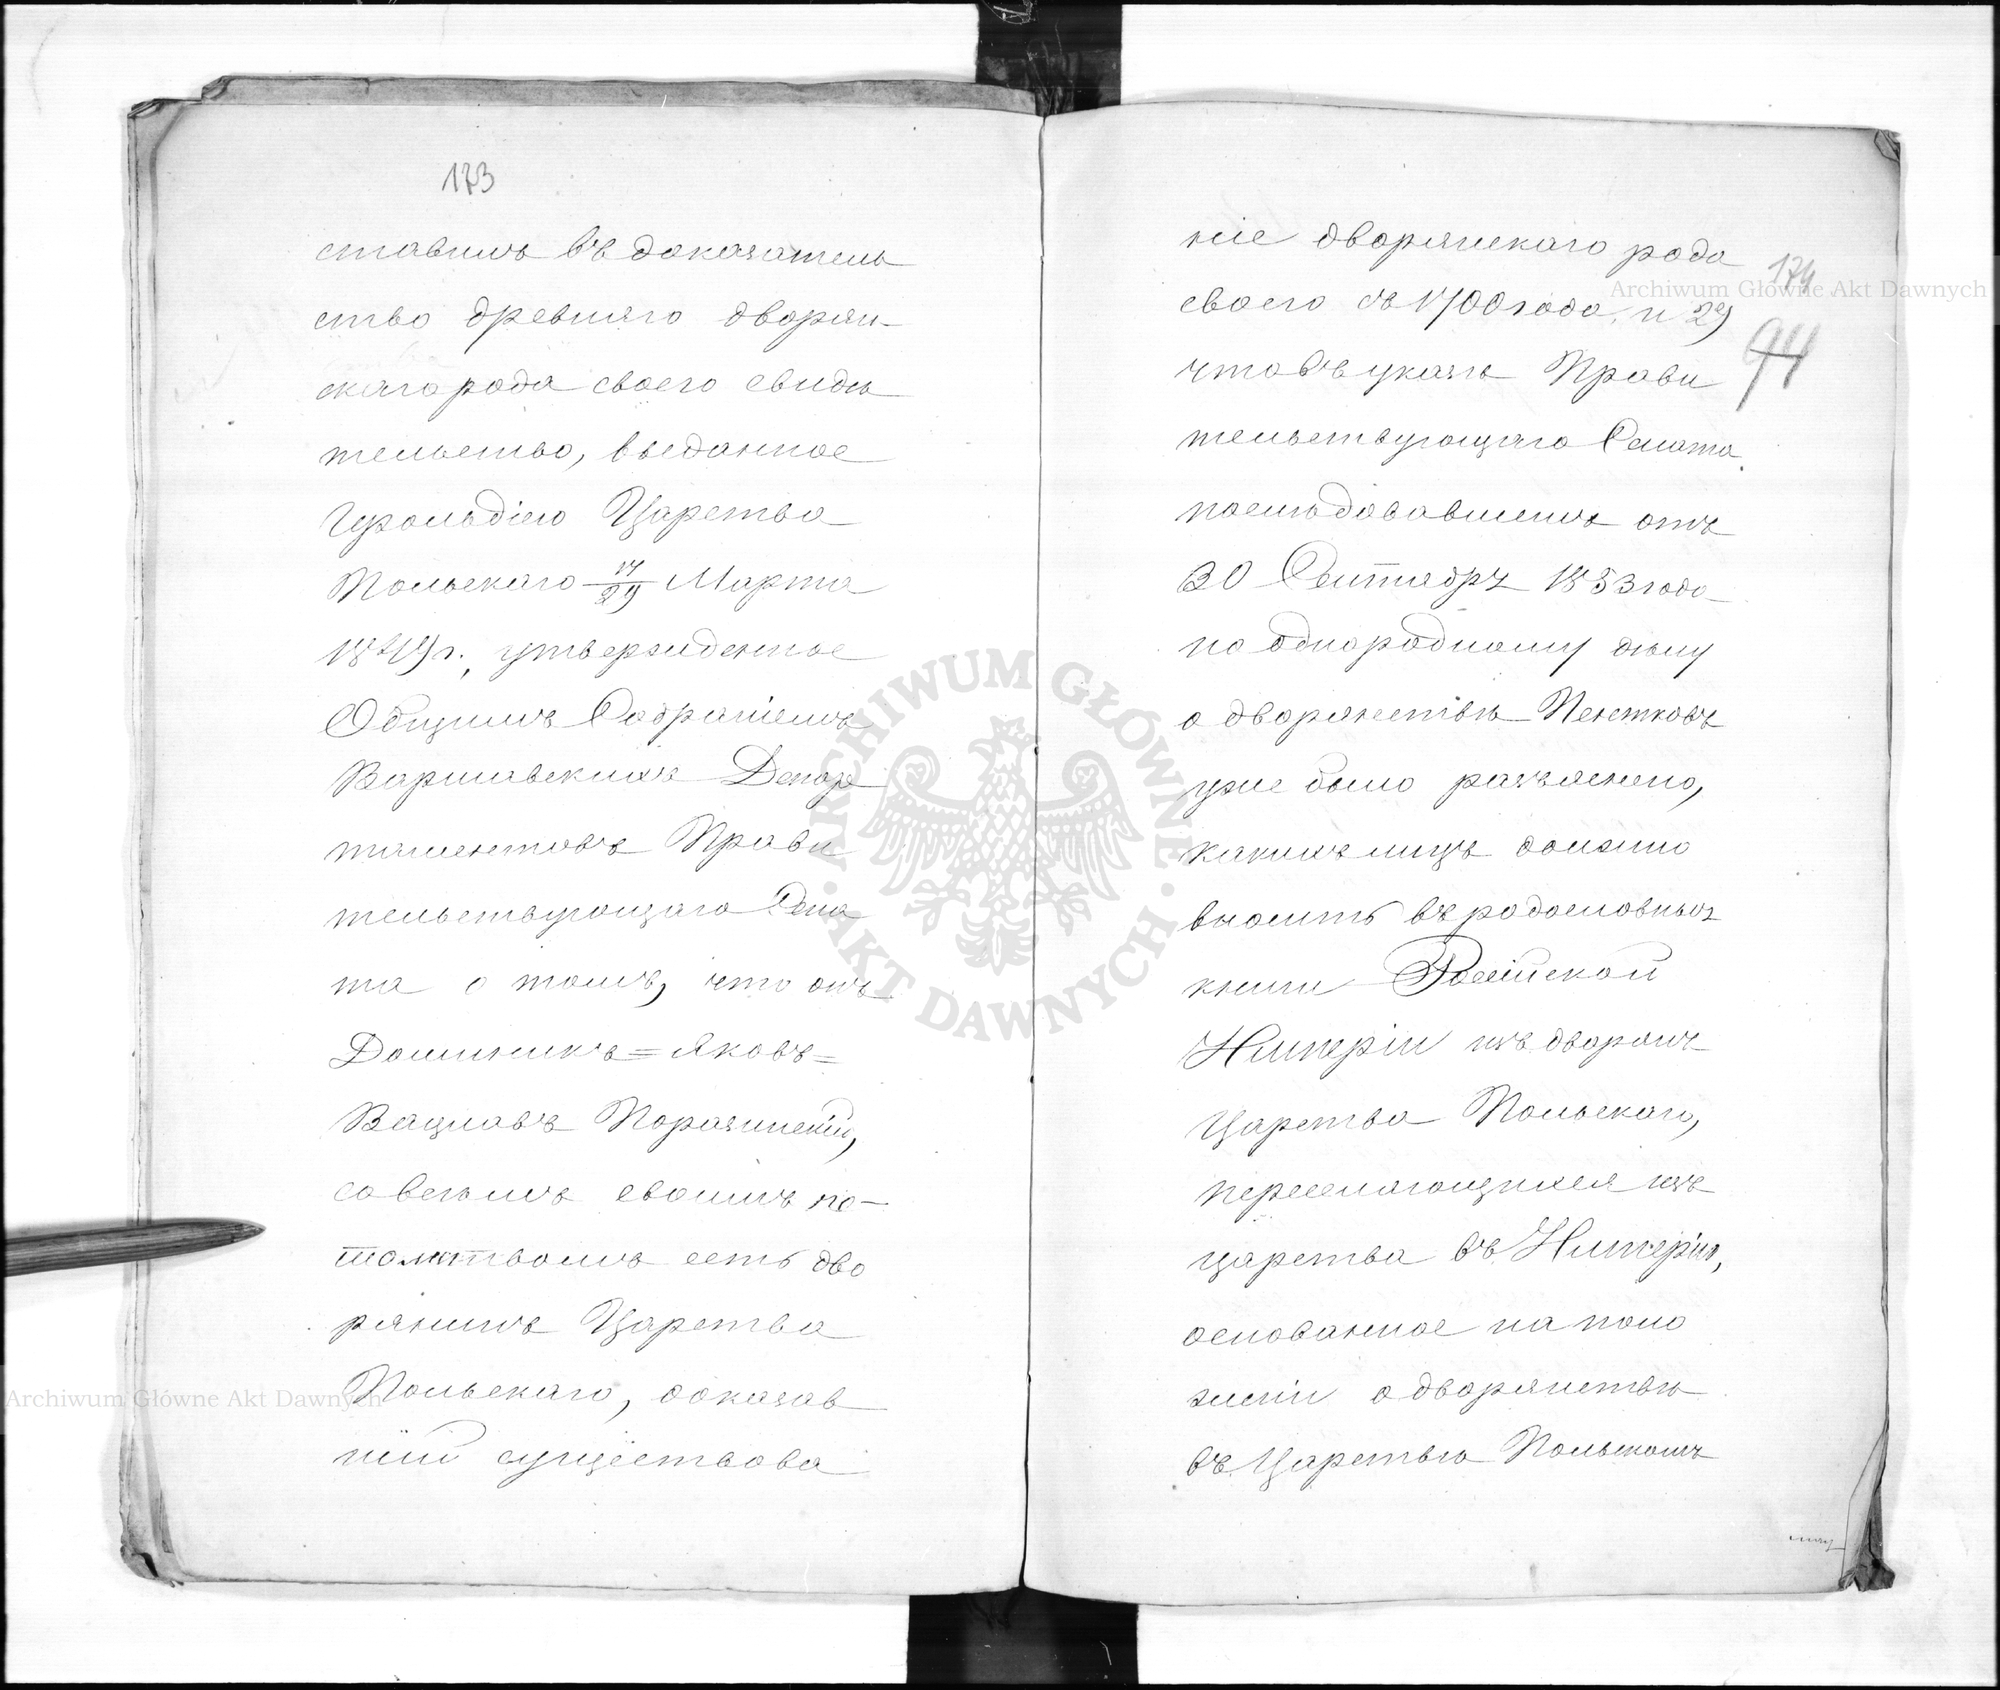 173
ставилъ въ доказатель
ство древняго дворян-
скаго рода своего свидѣ
тельство, выданное
Герольдіею Царства
Польскаго 17/29 Марта
1849 г., утвержденное
Общимъ Собраніемъ
Варшавскихъ Депар
таментовъ Прави
тельствующаго Сена
та о томъ, что онъ
Доминикъ=Яковъ=
Вацлавъ Поразинскій,
со всѣмъ своимъ по-
томствомъ есть дво
рянинъ Царства
Польскаго, доказав
шій существова
ніе дворянскаго рода
174
своего съ 1700 года, и 2)
94
что въ указѣ Прави
тельствующаго Сената
послѣдовавшемъ отъ
30 Сентября 1853 года
по однородному дѣлу
о дворянствѣ
уже было разъяснено,
какихъ лицъ должно
вносить въ родословныя
книги Россійской
Имперіи изъ дворянъ
Царства Польскаго,
переселяющихся изъ
царства въ Имперію,
основанное на поло
женіи о дворянствѣ
въ Царствѣ Польскомъ
Archiwum Główne Akt Dawnych
Archiwum Główne Akt Dawnych
ARCHIWUM GŁÓWNE · AKT DAWNYCH ·